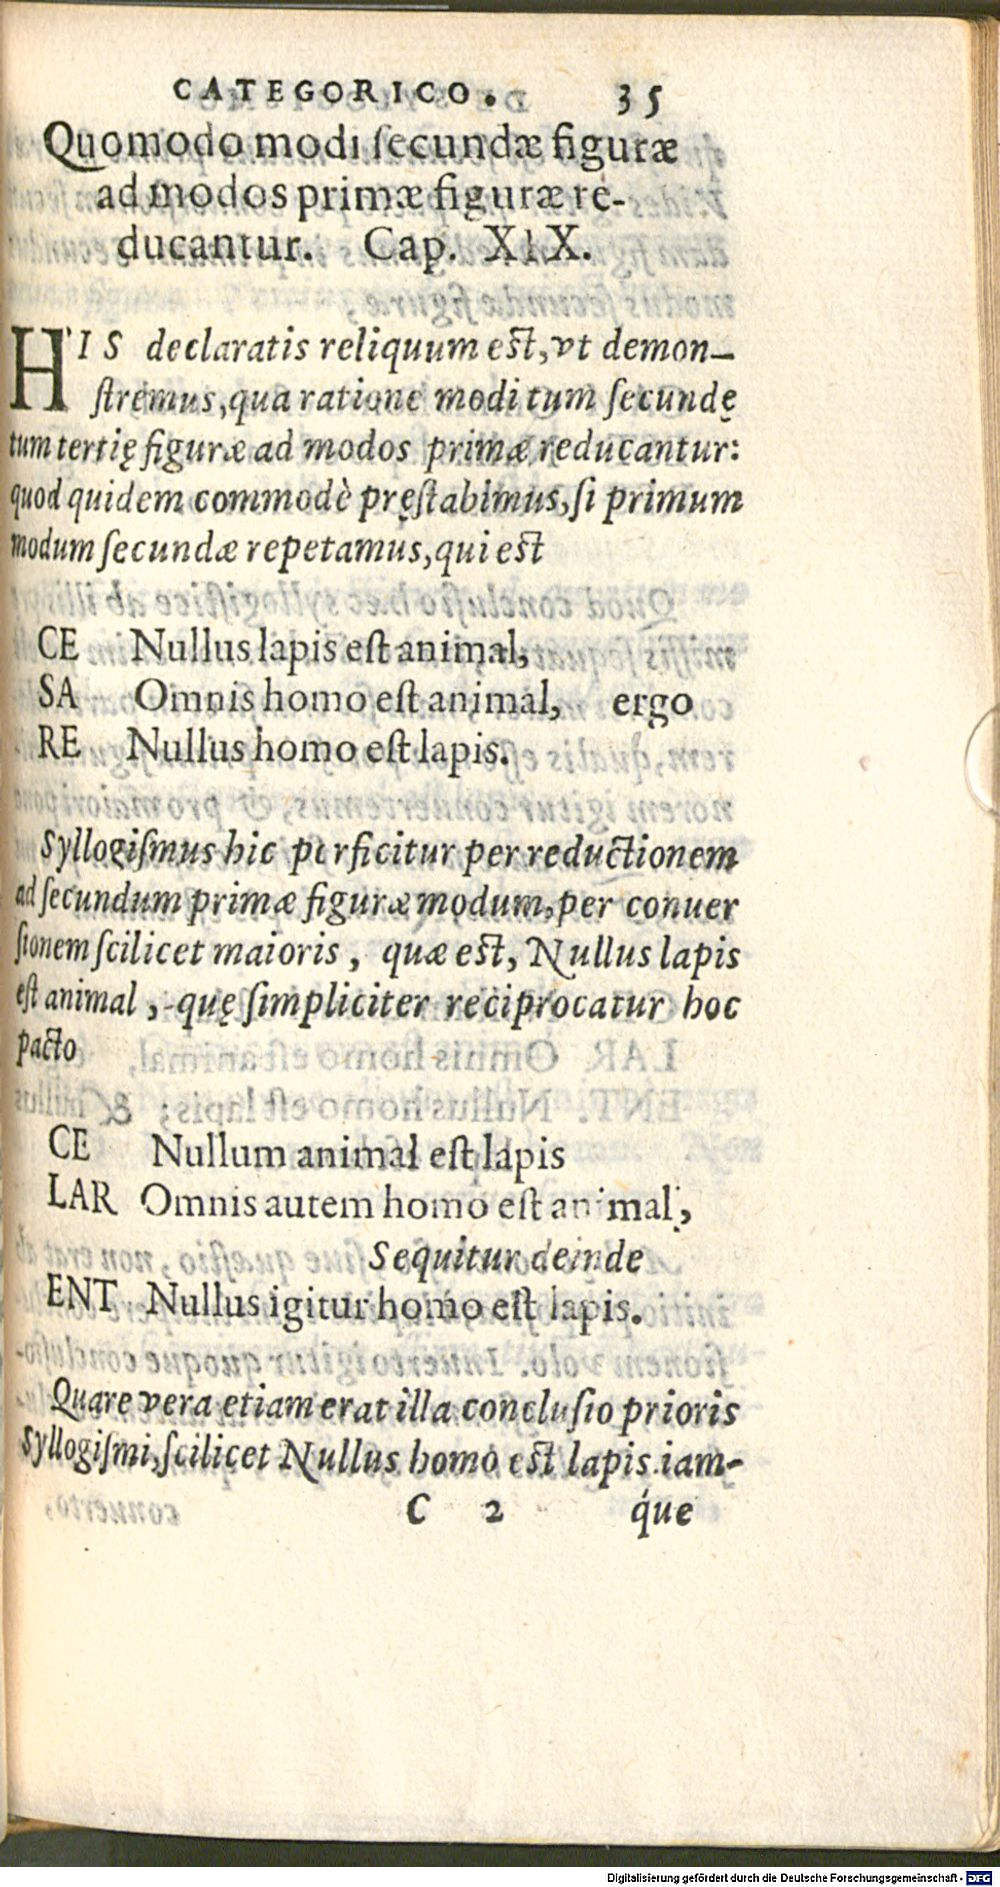 CATEGORICO. 35
Quomodo modi ſecundæ figuræ
ad modos primæ figuræ re-
ducantur. Cap. XIX.
HIS declaratis reliquum eſt, vt demon-
ſtremus, qua ratione modi tum ſecundę
tum tertię figuræ ad modos primæ reducantur:
quod quidem commodè pręſtabimus, ſi primum
modum ſecundæ repetamus, qui eſt
CE Nullus lapis eſt animal,
SA Omnis homo eſt animal, ergo
RE Nullus homo eſt lapis.
Syllogiſmus hic perficitur per reductionem
ad ſecundum primæ figuræ modum, per conuer
ſionem ſcilicet maioris, quæ eſt, Nullus lapis
eſt animal, quę ſimpliciter reciprocatur hoc
pacto
CE Nullum animal eſt lapis
LAR Omnis autem homo eſt animal,
Sequitur deinde
ENT Nullus igitur homo eſt lapis.
Quare vera etiam erat illa concluſio prioris
Syllogiſmi, ſcilicet Nullus homo eſt lapis iam-
C 2 q́ue
Digitalisierung gefördert durch die Deutsche Forschungsgemeinschaft - DFG